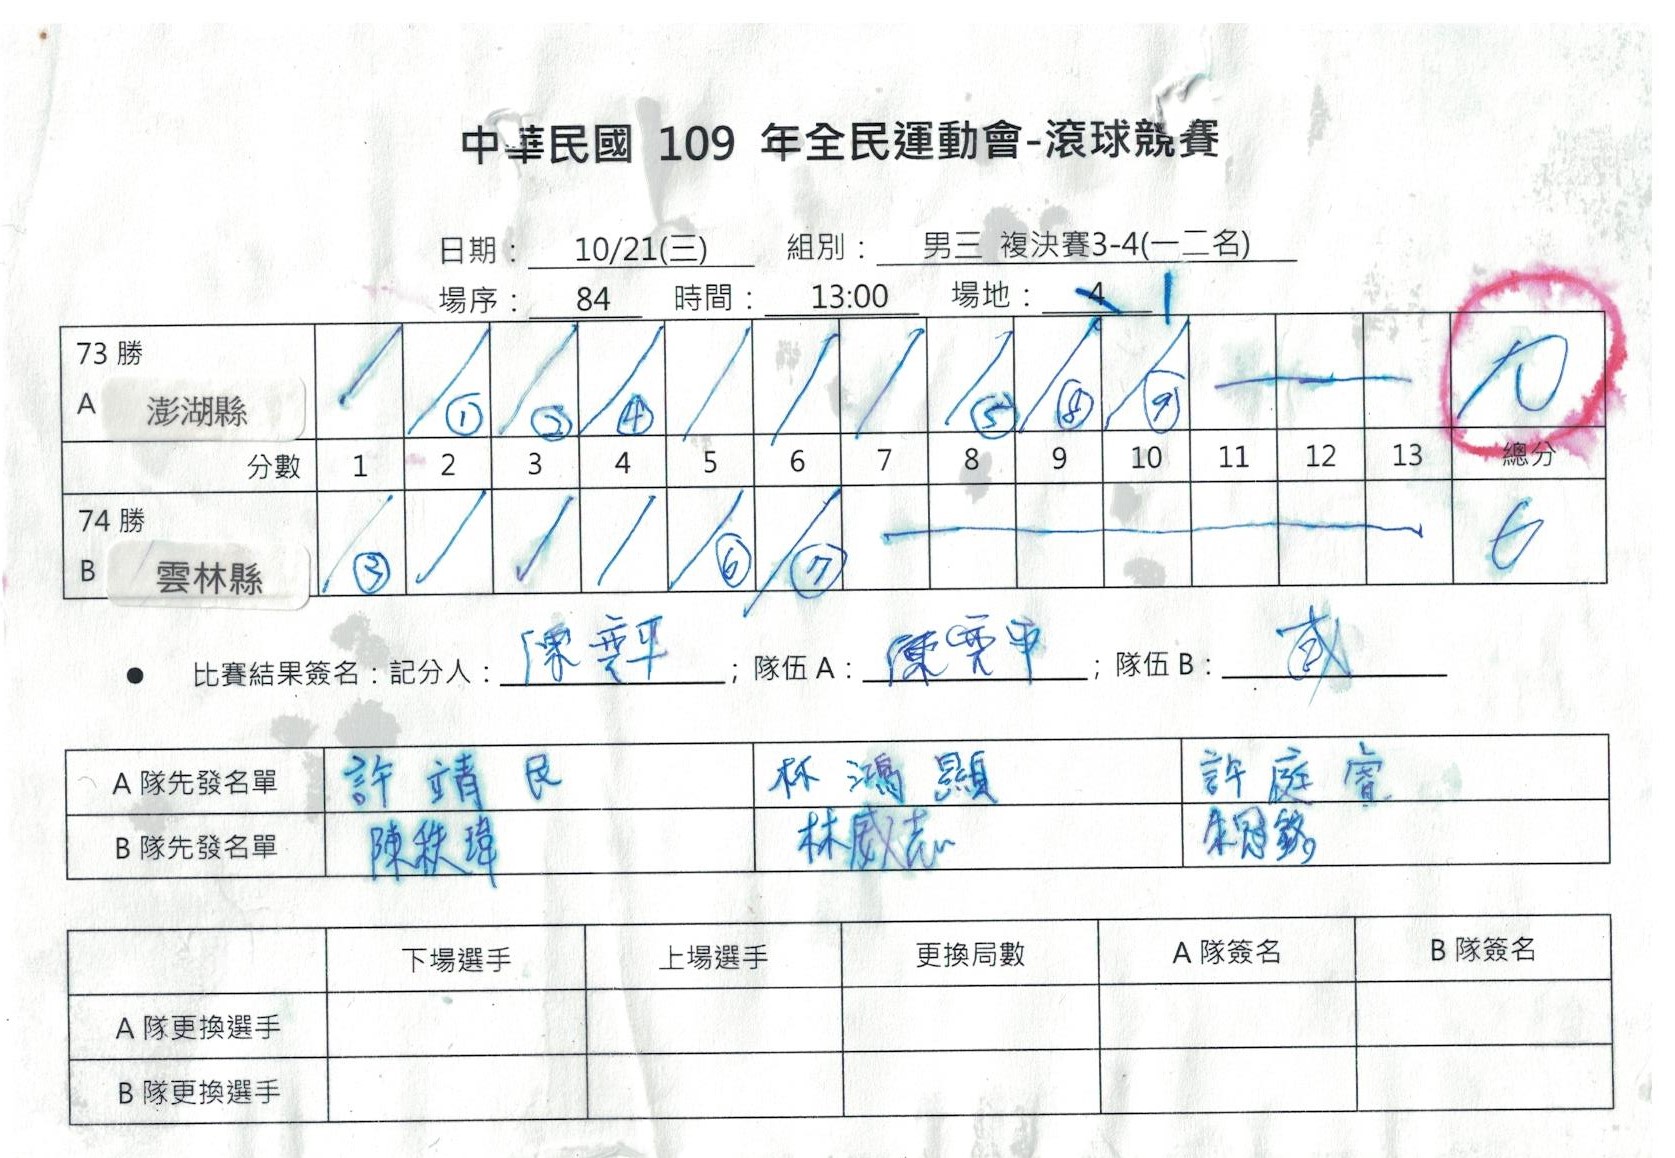 中華民國 109 年全民運動會-滾球競賽
日期： 10/21(三) 組別： 男三 複決賽3-4(一二名)
場序： 84 時間： 13:00 場地： 4 1
73 勝
A 澎湖縣 ① ② ④ ⑤ ⑧ ⑨ 10
分數 1 2 3 4 5 6 7 8 9 10 11 12 13 總分
74 勝
B 雲林縣 ③ ⑥ ⑦ 6
● 比賽結果簽名：記分人： 陳奕平 ；隊伍 A： 陳奕平 ；隊伍 B： 威
A 隊先發名單 許靖民 林鴻顯 許庭睿
B 隊先發名單 陳秩瑋 林威志
下場選手 上場選手 更換局數 A 隊簽名 B 隊簽名
A 隊更換選手
B 隊更換選手